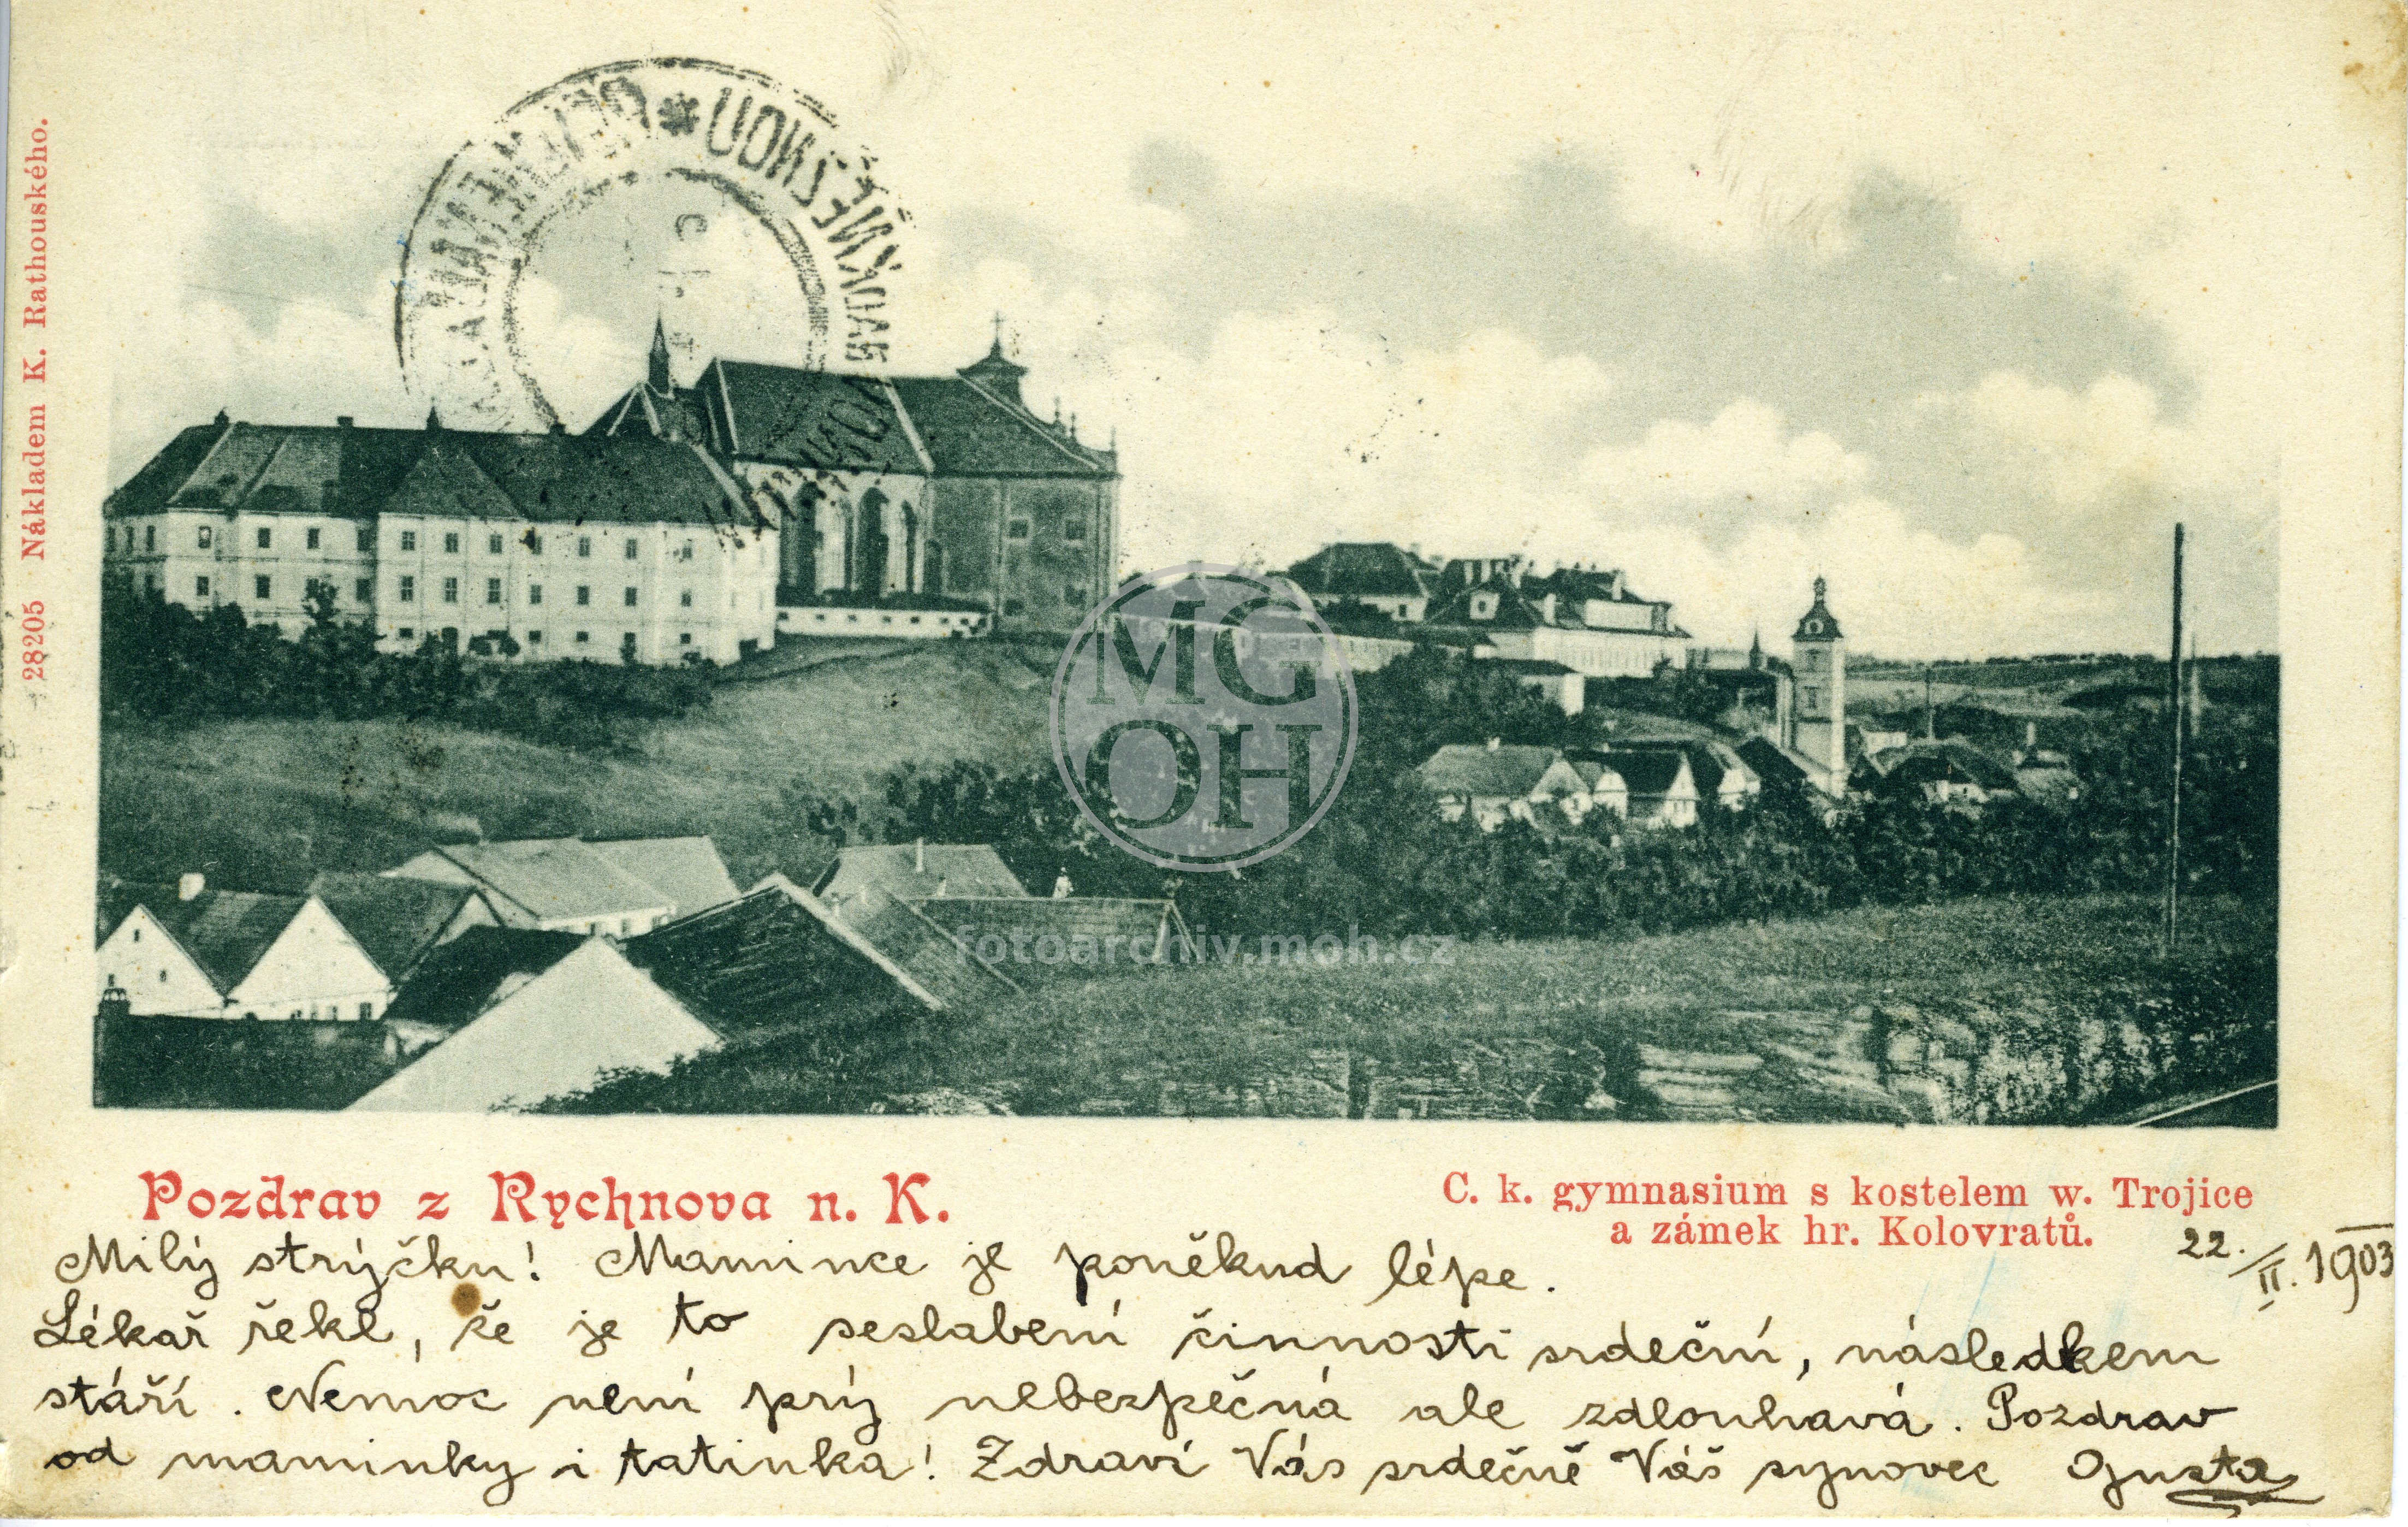 28205 Nákladem K. Rathouského.
MG
OH
fotoarchiv.moh.cz
Pozdrav z Rychnova n. K.
C. k. gymnasium s kostelem w. Trojice
a zámek hr. Kolovratů.
22./II. 1903
Milý strýčku! Mamince je poněkud lépe.
Lékař řekl, že je to seslabení činnosti srdeční, následkem
stáří. Nemoc není prý nebezpečná ale zdlouhavá. Pozdrav
od maminky i tatínka! Zdraví Vás srdečně Váš synovec Gusta